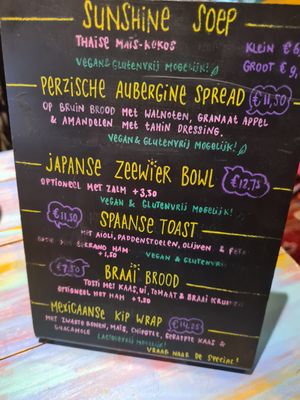 SUNSHINE SOEP
THAISE MAIS-KOKOS
KLEIN €
VEGAN & GLUTENVRIJ MOGELIJK!
GROOT €
PERZISCHE AUBERGINE SPREAD €11,50
OP BRUIN BROOD MET WALNOTEN, GRANAAT APPEL
& AMANDELEN MET TAHIN DRESSING.
VEGAN & GLUTENVRIJ MOGELIJK!
JAPANSE ZEEWIER BOWL €12,75
OPTIONEEL MET ZALM +3,50
VEGAN & GLUTENVRIJ MOGELIJK!
€11,50 SPAANSE TOAST
MET AIOLI, PADDENSTOELEN, OLIJVEN & FETA
SERRANO HAM VEGAN & GLUTENVRIJ
+1,50
€7,50 BRAAI BROOD
TOSTI MET KAAS, UI, TOMAAT & BRAAI KRUIDEN
OPTIONEEL MET HAM +1,50
MEXICAANSE KIP WRAP €14,25
MET ZWARTE BONEN, MAÏS, CHIPOTLE, GERASPTE KAAS &
GUACAMOLE LACTOSEVRIJ MOGELIJK!
VRAAG NAAR DE SPECIAL!